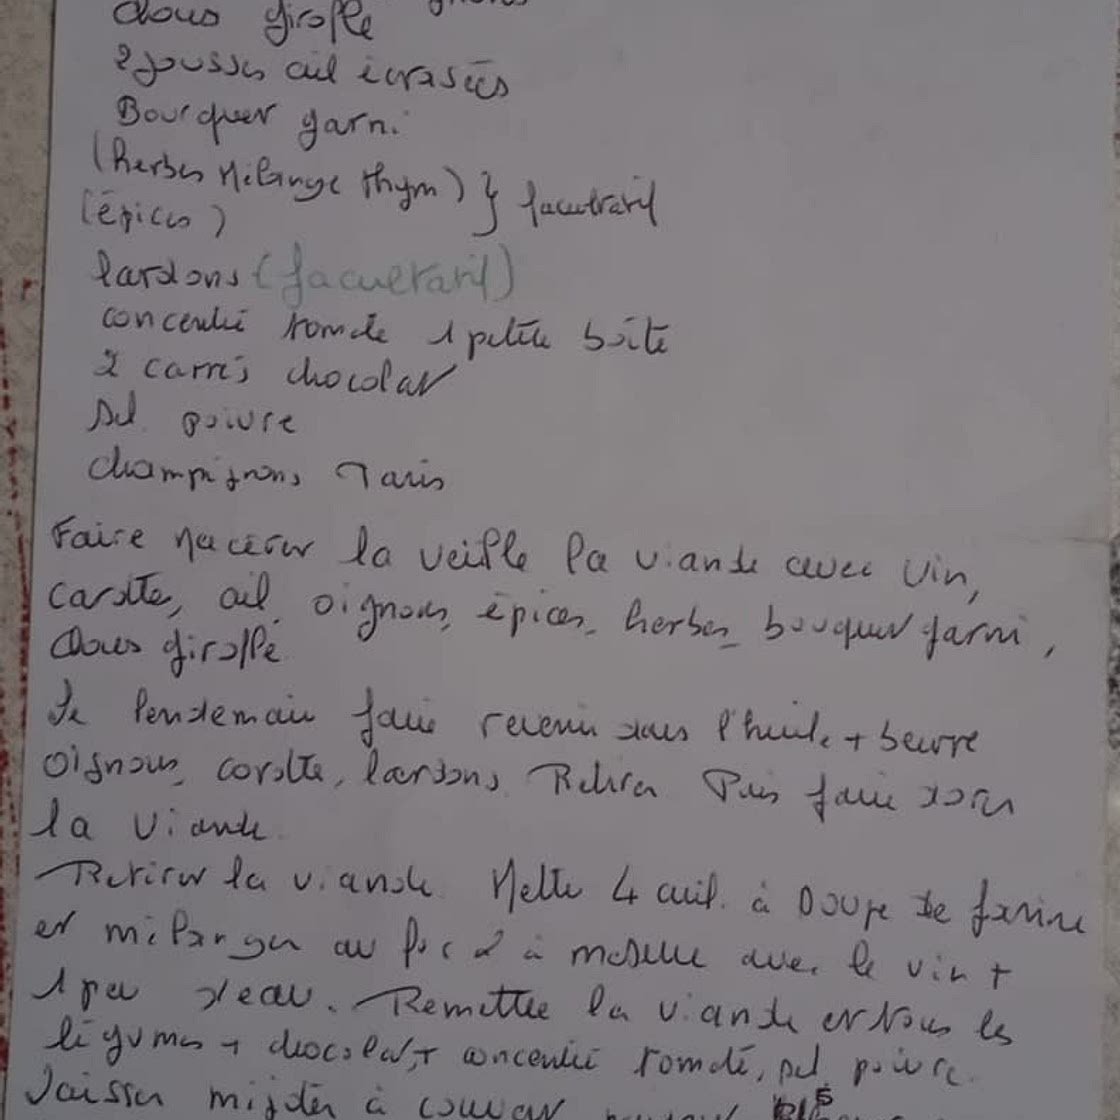 clous girofle
2 gousses ail écrasées
Bourquer garni
(herbes Mélange thym) } facultatif
(épices)
lardons (facultatif)
concentré tomate 1 petite boîte
2 carrés chocolat
Sel poivre
champignons Paris
Faire Macérer la veille la viande avec vin,
carotte, ail, oignons, épices, herbes, bouquer garni,
clous girofle.
Le lendemain faire revenir dans l'huile + beurre
oignons, carotte, lardons. Retirer Puis faire dorer
la viande.
Retirer la viande. Mettre 4 cuil. à soupe de farine
et mélanger au avec le vin +
1 peu d'eau. Remettre la viande et tous les
légumes + chocolat, + concentré tomate, sel poivre.
Laisser mijoter à couvert